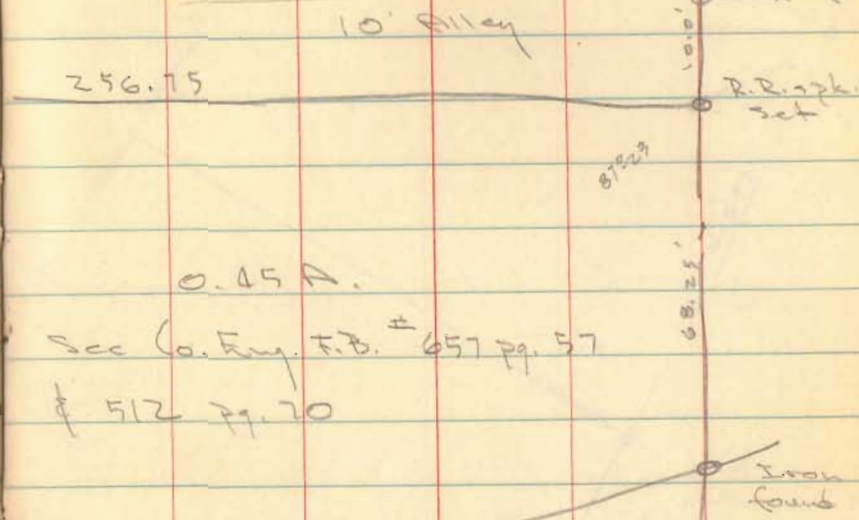 10' Alley
10.0'
256.75
R.R. spk.
set
87°23
0.45 A.
68.25'
See Co. Eng. F.B. # 657 pg. 57
& 512 pg. 70
Iron
found